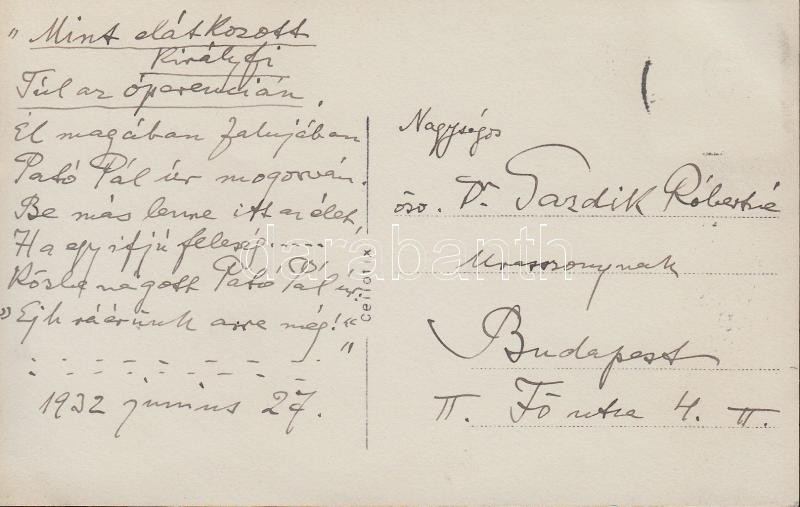 „Mint elátkozott
királyfi
Túl az óperencián,
Él magában falujában
Pató Pál úr mogorván.
Be más lenne itt az élet,
Ha egy ifjú feleség .....
Közbe vágott Pató Pál úr:
„Ejh ráérünk arra még!"
"
1932 június 27.
Cellofix
Nagyságos
özv. Dr. Gazdik Róbertné
Urasszonynak
Budapest
II. Fő utca 4. II.
darabanth